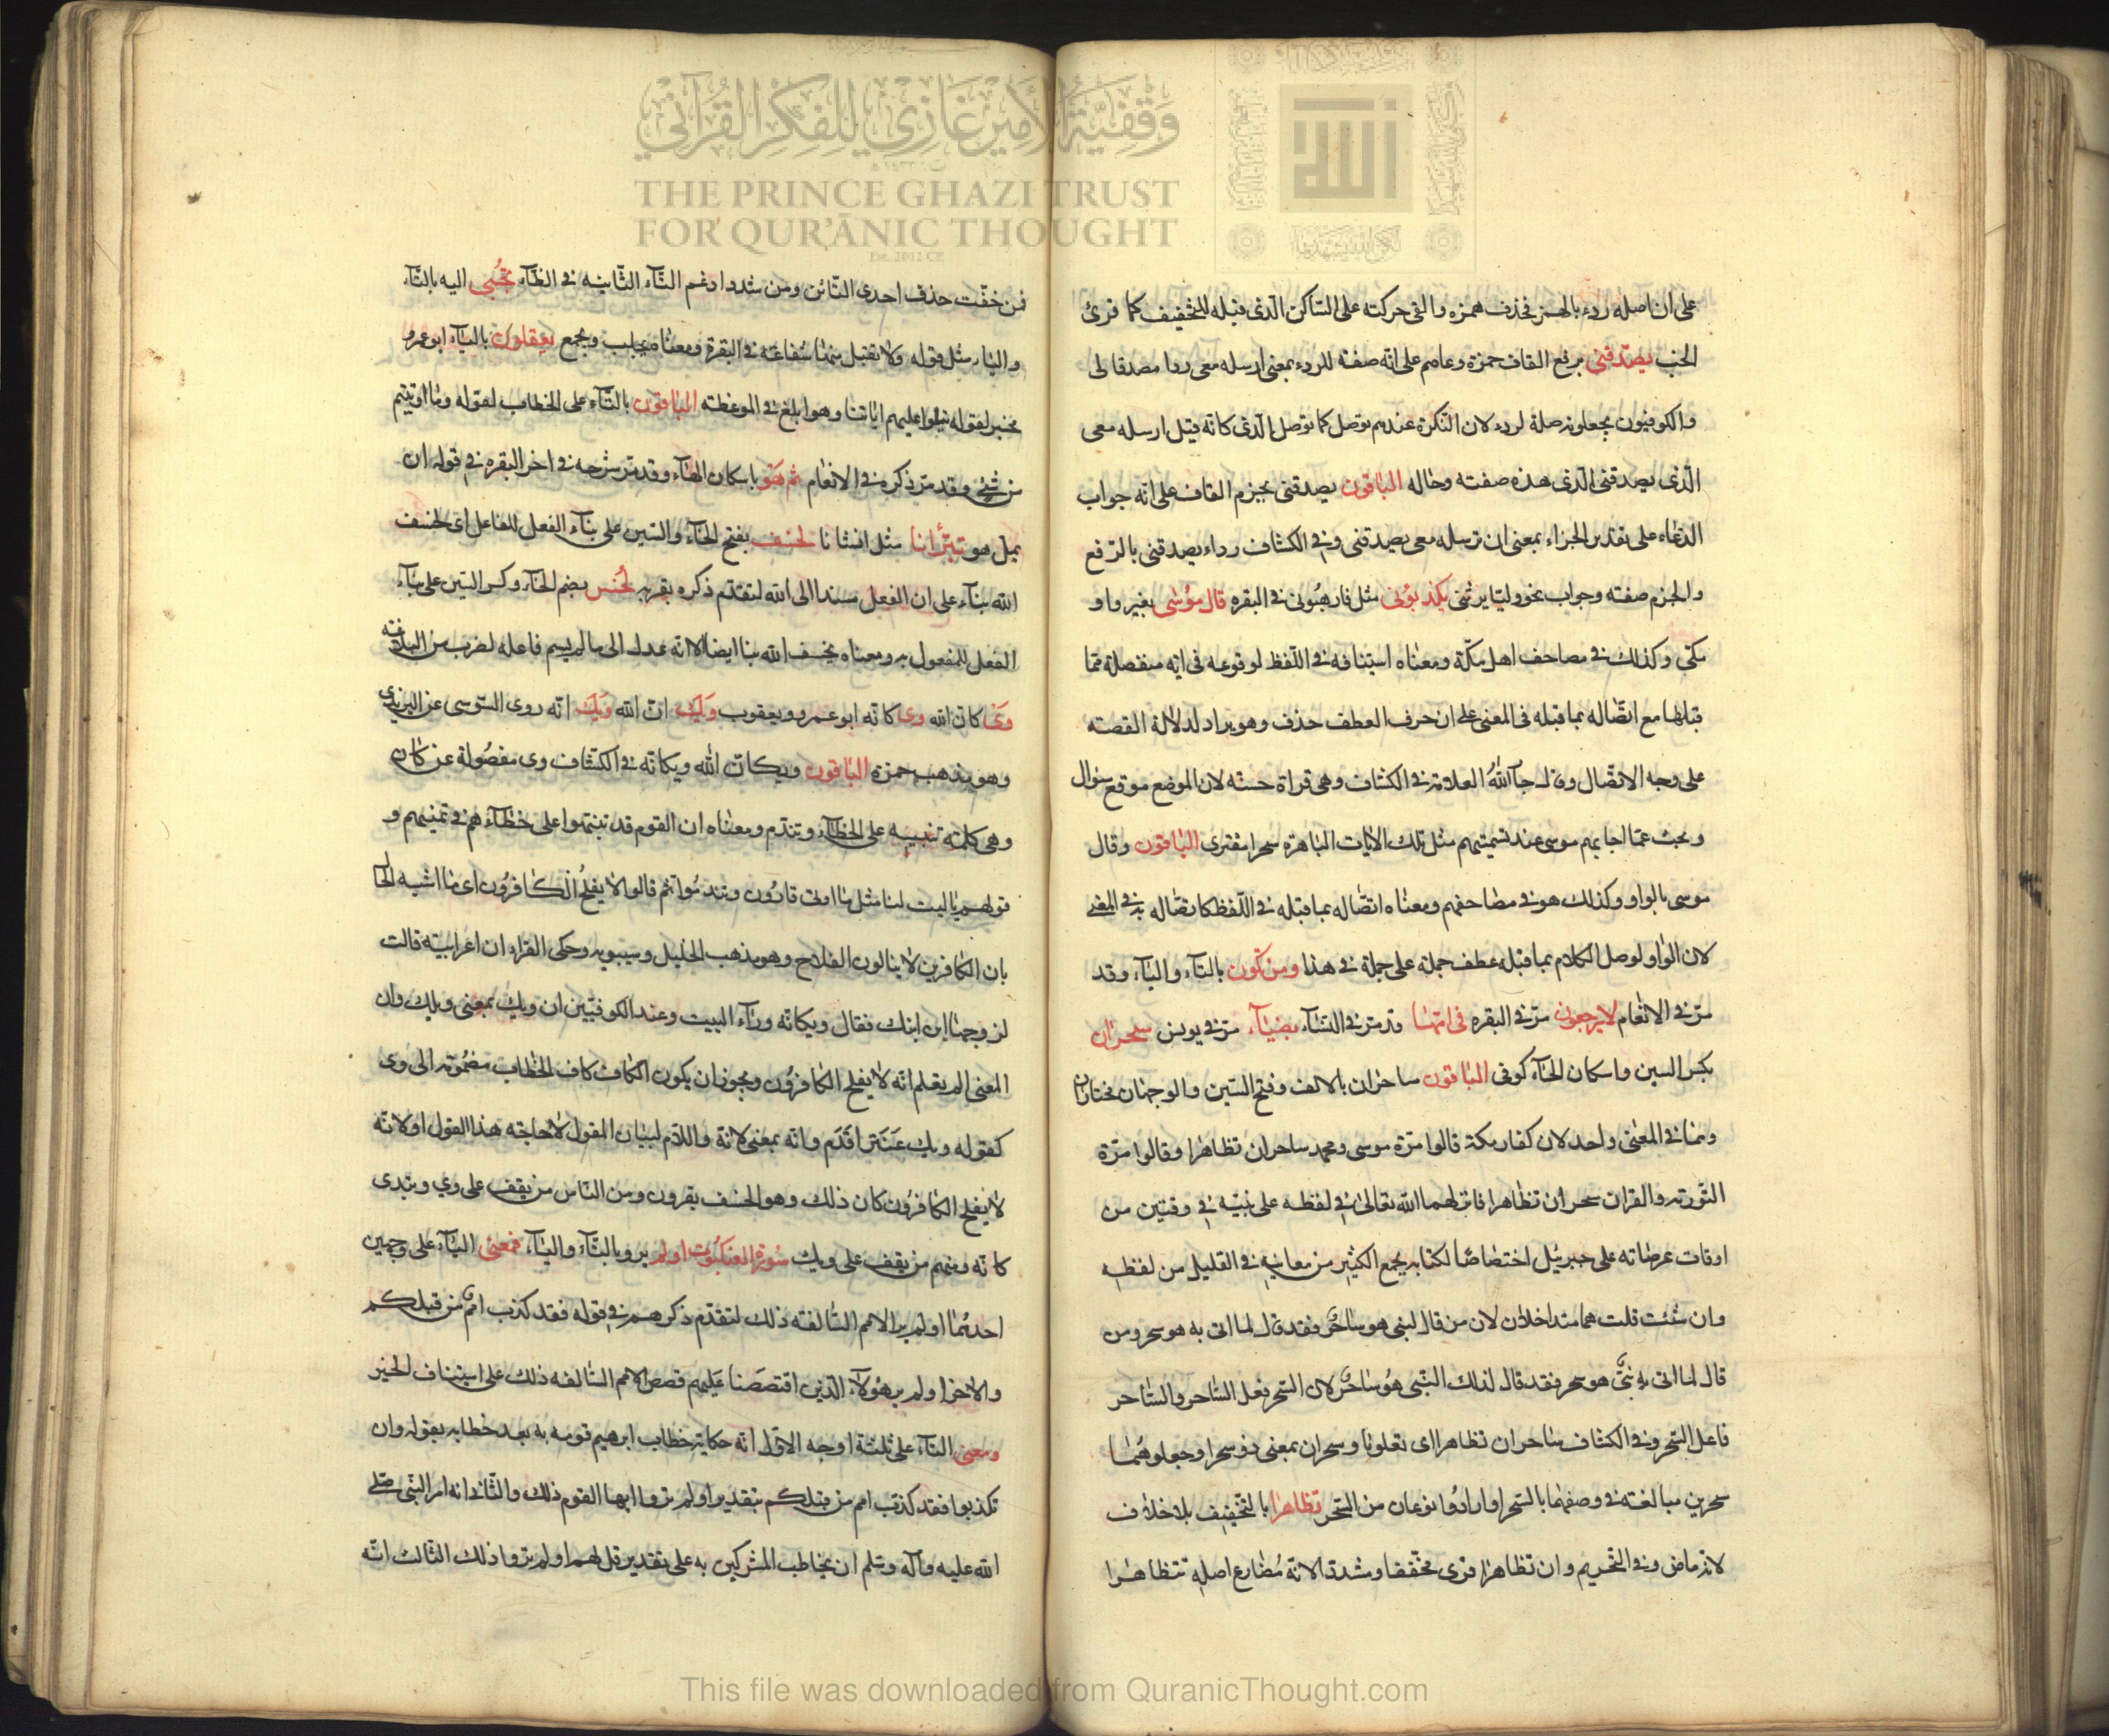 على ان اصله ردء بالهمز فحذف همزه والقى حركته على الساكن الذى قبله للتخفيف كما قرئ
الخب يصدقنى برفع القاف حمزة وعاصم على انه صفته للردء بمعنى ارسله معى ردا مصدقا لى
والكوفيون يجعلونه صلة لردء لان النكرة عندهم توصل كما توصل الذى كانه قيل ارسله معى
الذى يصدقنى الذى هذه صفته وحاله الباقون يصدقنى بجزم القاف على انه جواب
الدعاء على تقدير الجزاء بمعنى ان ترسله معى يصدقنى وفى الكشاف رداء يصدقنى بالرفع
والجزم صفته وجواب نحو وليا يرثنى يكذبونى مثل فارهبونى فى البقره قال موسى بغير واو
مكى وكذلك فى مصاحف اهل مكة ومعناه استينافه فى اللفظ لوقوعه فى ايه منفصلة مما
قبلها مع اتصاله بما قبله فى المعنى على ان حرف العطف حذف وهو يراد لدلالة القصته
على وجه الاتصال وقال جار الله العلامة فى الكشاف وهى قراة حسنه لان الموضع موقع سؤال
وبحث عما اجابهم موسى عند تسميتهم مثل تلك الايات الباهرة سحرا مفترى الباقون وقال
موسى بالواو وكذلك هو فى مصاحفهم ومعناه اتصاله بما قبله فى اللفظ كاتصاله به فى المعنى
لان الواو لوصل الكلام بما قبله عطف جملة على جملة فى هذا ومن تكون بالتاء والياء وقد
مر فى الانعام لا يرجعون مر فى البقره فى امها قد مر فى النساء بضياء مر فى يونس سحران
بكسر السين واسكان الحاء كوفى الباقون ساحران بالالف وفتح السين والوجهان مختاران
وهما فى المعنى واحد لان كفار مكة قالوا مرة موسى ومحمد ساحران تظاهرا وقالوا مرة
التورته والقران سحران تظاهرا فانزلهما الله تعالى فى لفظه على نبيه فى وقتين من
اوقات عرضاته على جبرئيل اختصاصا لكتابه بجمع الكثير من معانيه فى القليل من لفظه
وان شئت قلت هما متداخلان لان من قال لنبى هو ساحر فقد قال لما اتى به هو سحر ومن
قال لما اتى به نبى هو سحر فقد قال لذلك النبى هو ساحر لان السحر فعل الساحر والساحر
فاعل السحر وفى الكشاف ساحران تظاهرا اى تعاونا وسحران بمعنى ذو سحر او جعلوهما
سحرين مبالغته فى وصفهما بالسحر او ارادوا نوعان من السحر تظاهرا بالتخفيف بلا خلاف
لانه ماض وفى التحريم وان تظاهرا قرى مخففا ومشددا لانه مضارع اصله تتظاهرا
فمن خفف حذف احدى التائن ومن شدد ادغم التاء الثانيه فى الظاء تجبى اليه بالتاء
والياء مثل قوله ولا تقبل منها شفاعته فى البقرة ومعناه يجلب ويجمع يعقلون بالياء ابو عمرو
مخبر لقوله يتلوا عليهم اياتنا وهو ابلغ فى الموعظته الباقون بالتاء على الخطاب لقوله وما اوتيتم
من شئ وقد مر ذكره فى الانعام ثم هو باسكان الهاء وقد مر شرحه فى اخر البقره فى قوله ان
يمل هو تبرأنا مثل انشانا لخسف بفتح الخاء والسين على بناء الفعل للفاعل اى لخسف
الله بناء على ان الفعل مسندا الى الله لتقدم ذكره بقربه لخسف بضم الخاء وكسر السين على بناء
الفعل للمفعول به ومعناه يخسف الله بنا ايضا لانه عدل الى ما لم يسم فاعله لضرب من البلاغته
وى كان الله وى كانه ابو عمرو ويعقوب ويك ان الله ويك انه روى السوسى عن اليزيدى
وهو مذهب حمزه الباقون ويكان الله ويكانه فى الكشاف وى مفصولة عن كان
وهى كلمته تنبيه على الخطاء وتندم ومعناه ان القوم قد تنبهوا على خطاءهم فى تمنيهم و
قولهم ياليت لنا مثل ما اوتى قارون وتندموا ثم قالوا لا يفلح الكافرون اى ما اشبه الحا
بان الكافرين لا ينالون الفلاح وهو مذهب الخليل وسيبويه وحكى الفراء ان اعرابيته قالت
لزوجها اين ابنك فقال ويكانه وراء البيت وعند الكوفيين ان ويك بمعنى ويلك وان
المعنى الم يعلم انه لا يفلح الكافرون ويجوز ان يكون الكاف كاف الخطاب مضمومه الى وى
كقوله ويك عنتر اقدم وانه بمعنى لانه واللام لبيان المقول لاحاجته هذا القول او لانه
لا يفلح الكافرون كان ذلك وهو الخسف بقارون ومن الناس من يقف على وي ويبتدى
كانه ومنهم من يقف على ويك سورة العنكبوت اولم يروا بالتاء والياء فمعنى الياء على وجهين
احدهما اولم ير الامم السالفته ذلك لتقدم ذكرهم فى قوله فقد كذب امم من قبلكم
والاخر اولم ير هؤلاء الذين اقتصصنا عليهم قصص الامم السالفه ذلك على استيناف الخبر
ومعنى التاء على ثلثة اوجه الاول انه حكاية خطاب ابرهيم قومه به بعد خطابه بقوله وان
تكذبوا فقد كذب امم من قبلكم بتقدير اولم تروا ايها القوم ذلك والثانى انه امر النبى صلى
الله عليه وآله وسلم ان يخاطب المشركين به على تقدير قل لهم اولم تروا ذلك الثالث انه
وقفية الأمير غازي للفكر القرآني
THE PRINCE GHAZI TRUST
FOR QUR'ĀNIC THOUGHT
Est. 2012 CE
This file was downloaded from QuranicThought.com